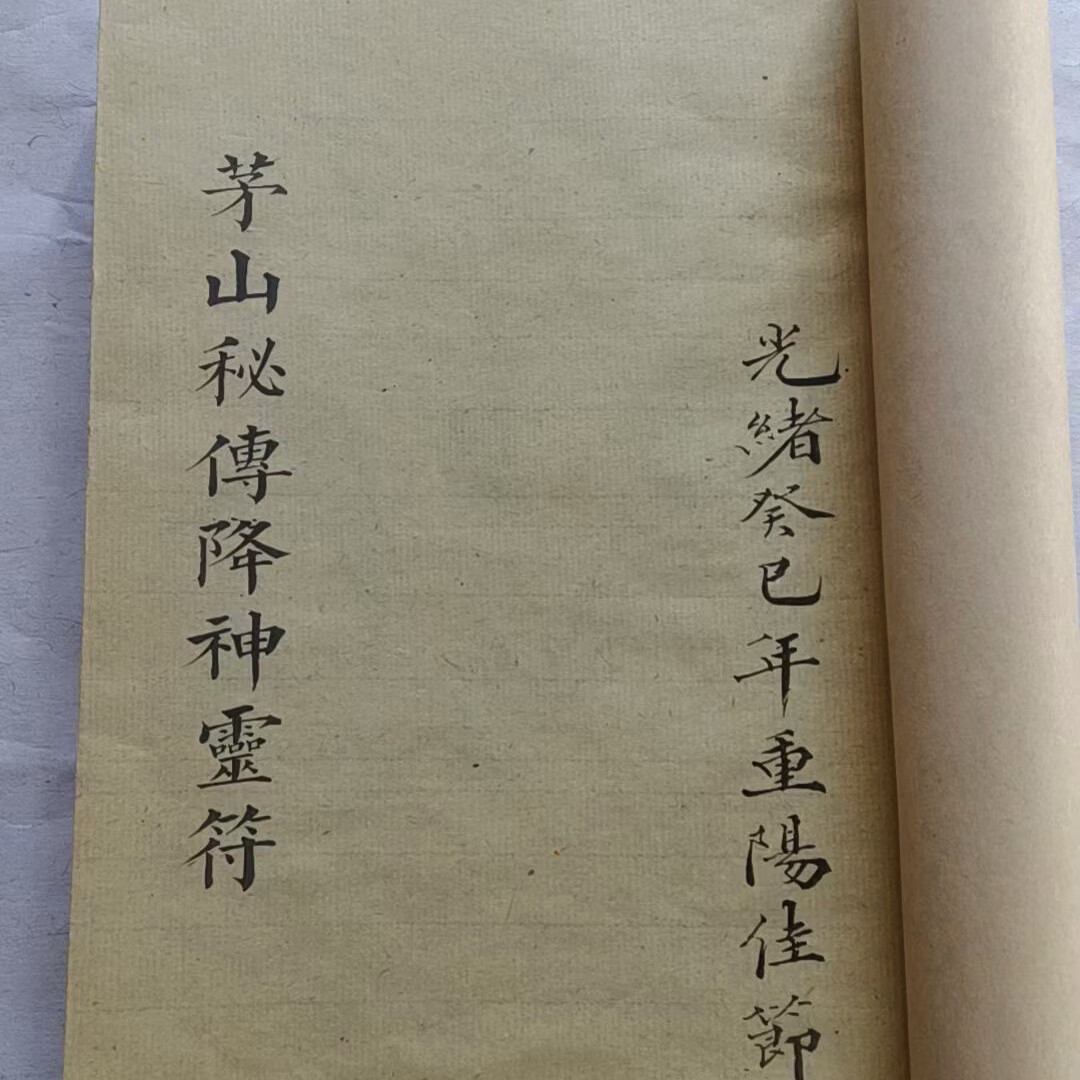 光緒癸巳年重陽佳節
茅山秘傳降神靈符